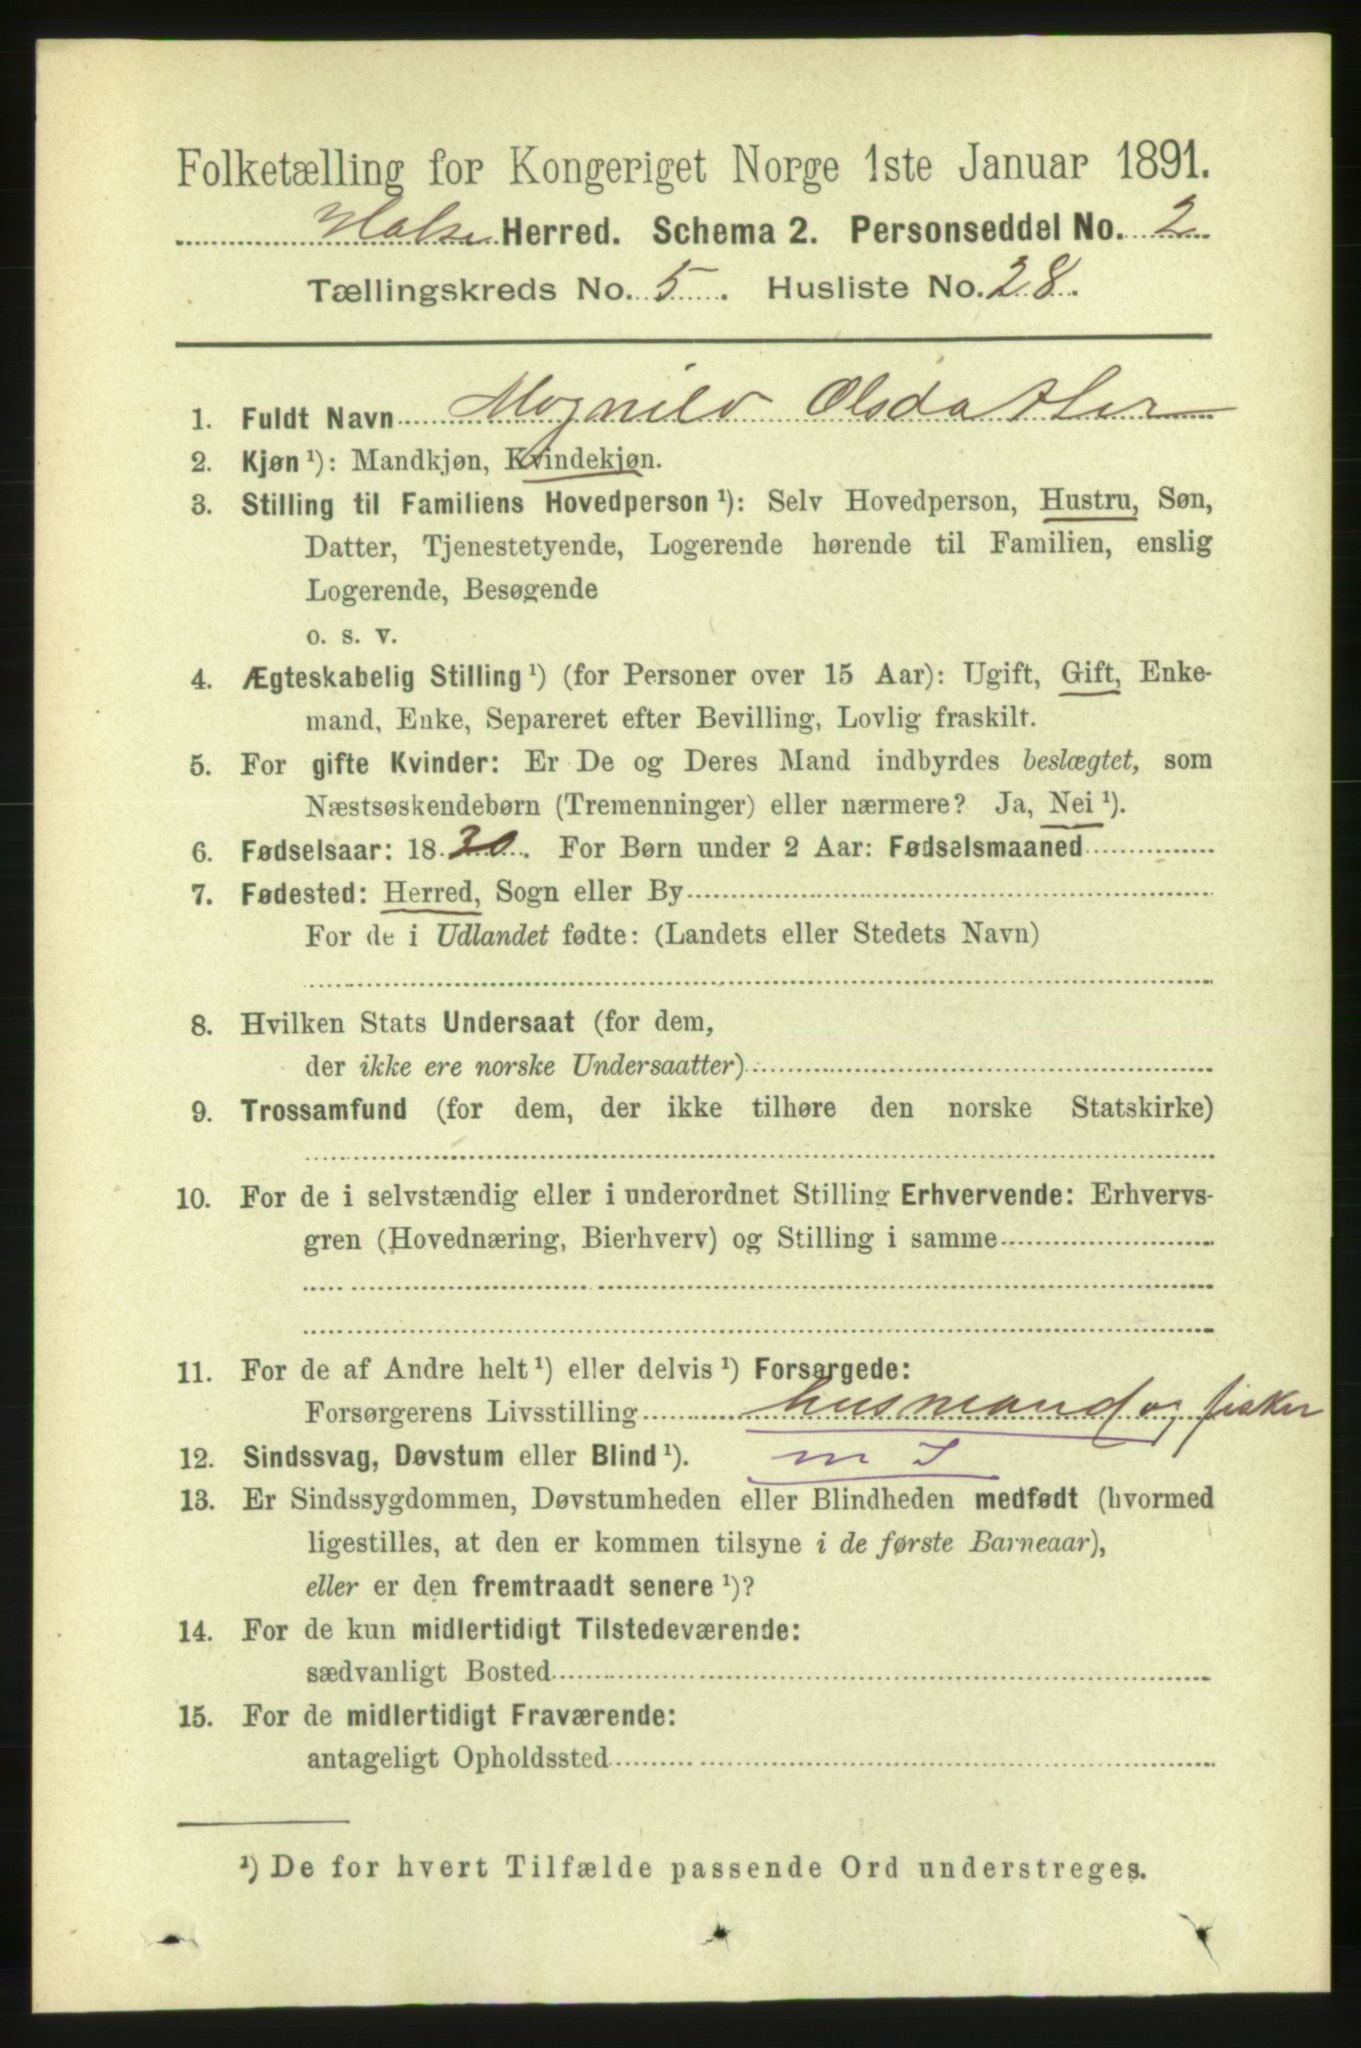 Folketælling for Kongeriget Norge 1ste Januar 1891.
Halse Herred. Schema 2. Personseddel No. 2
Tællingskreds No. 5. Husliste No. 28.
1. Fuldt Navn Magnild Olsdatter
2. Kjøn ¹): Mandkjøn, Kvindekjøn.
3. Stilling til Familiens Hovedperson ¹): Selv Hovedperson, Hustru, Søn,
Datter, Tjenestetyende, Logerende hørende til Familien, enslig
Logerende, Besøgende
o. s. v.
4. Ægteskabelig Stilling ¹) (for Personer over 15 Aar): Ugift, Gift, Enke-
mand, Enke, Separeret efter Bevilling, Lovlig fraskilt.
5. For gifte Kvinder: Er De og Deres Mand indbyrdes beslægtet, som
Næstsøskendebørn (Tremenninger) eller nærmere? Ja, Nei ¹).
6. Fødselsaar: 18 . For Børn under 2 Aar: Fødselsmaaned
7. Fødested: Herred, Sogn eller By
For de i Udlandet fødte: (Landets eller Stedets Navn)
8. Hvilken Stats Undersaat (for dem,
der ikke ere norske Undersaatter)
9. Trossamfund (for dem, der ikke tilhøre den norske Statskirke)
10. For de i selvstændig eller i underordnet Stilling Erhvervende: Erhvervs-
gren (Hovednæring, Bierhverv) og Stilling i samme
11. For de af Andre helt ¹) eller delvis ¹) Forsørgede:
Forsørgerens Livsstilling husmand og fisker
12. Sindssvag, Døvstum eller Blind ¹). m
13. Er Sindssygdommen, Døvstumheden eller Blindheden medfødt (hvormed
ligestilles, at den er kommen tilsyne i de første Barneaar),
eller er den fremtraadt senere ¹)?
14. For de kun midlertidigt Tilstedeværende:
sædvanligt Bosted
15. For de midlertidigt Fraværende:
antageligt Opholdssted
¹) De for hvert Tilfælde passende Ord understreges.